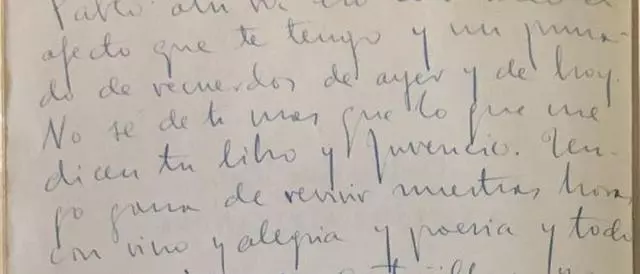 Pablo
afecto que te tengo y un puña-
do de recuerdos de ayer y de hoy.
No se de ti mas que lo que me
dicen tu libro y Juvencio. Ten-
go gana de revivir nuestras horas
con vino y alegria y poesia y todo